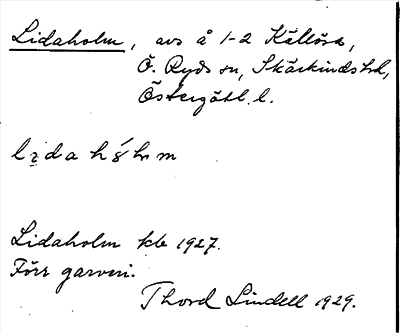 Lidaholm, avs å 1-2 Källöra,
Ö. Ryds sn, Skärkinds hd,
Östergötl. l.
Lidaholm kb 1927.
Förr garveri.
Thord Lindell 1929.